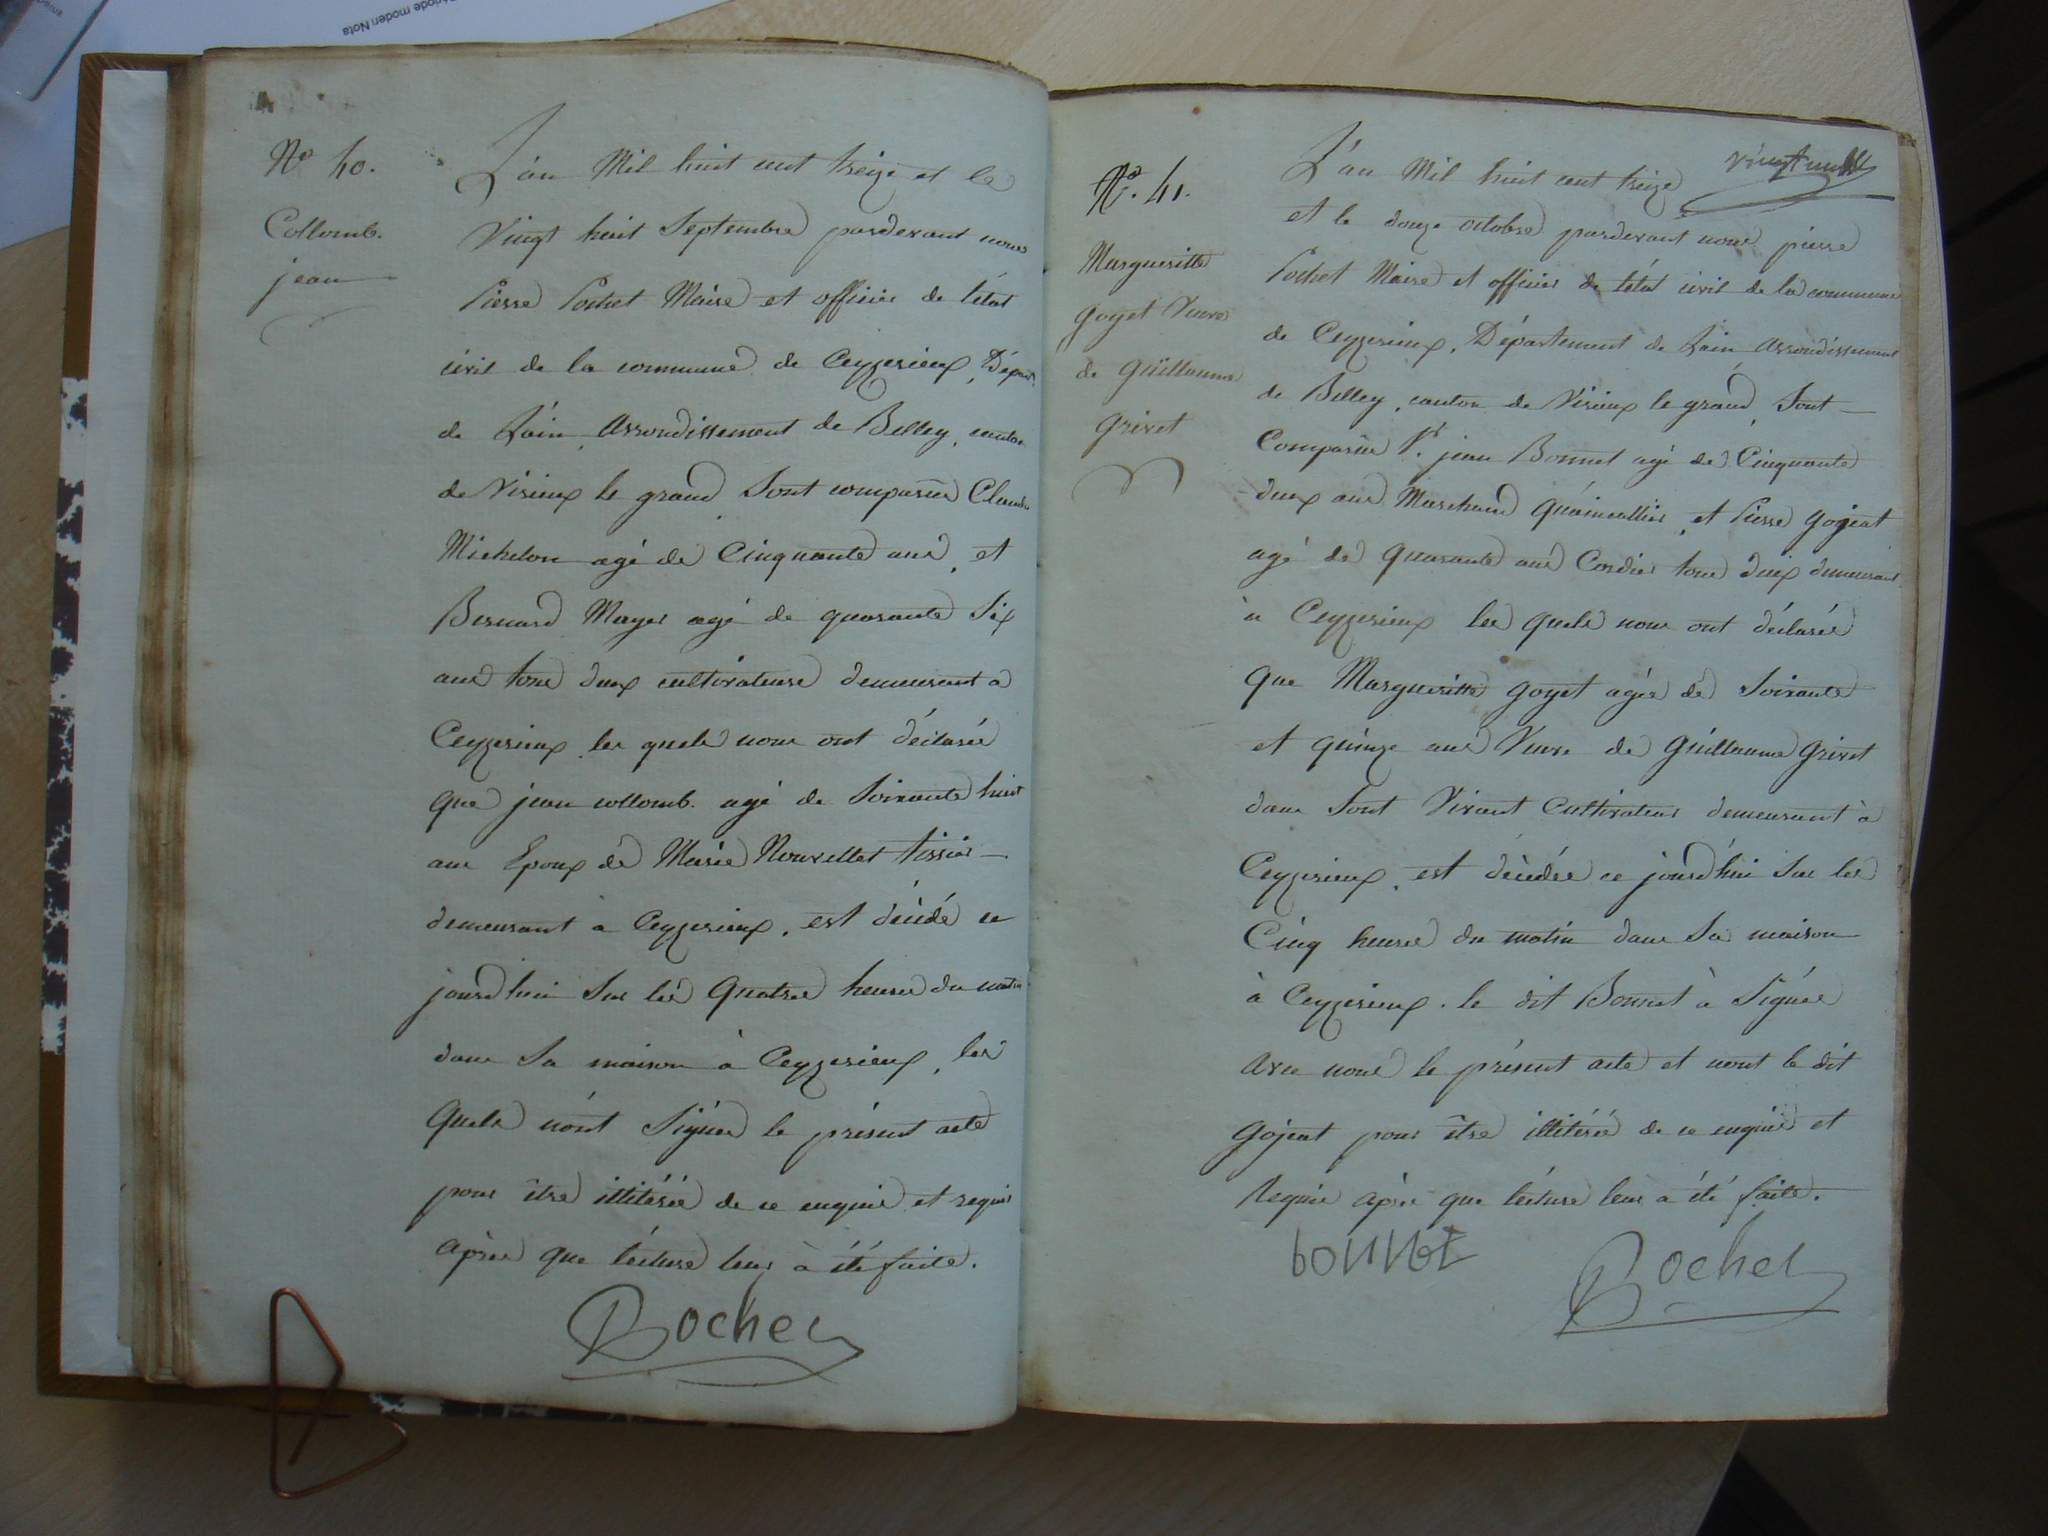 Nº 40.
Collomb.
jean
L'an Mil huit cent treize et le
Vingt huit Septembre pardevant nous
Pierre Pochet Maire et officier de l'état
civil de la commune de Ceyzerieux, Départ.
de L'ain, Arrondissement de Belley, canton
de Virieux le grand, Sont comparus Claude
Michelon agé de Cinquante ans, et
Bernard Mayer agé de quarante Six
ans tous deux cultivateurs demeurant a
Ceyzerieux, les quels nous ont déclarés
que jean collomb. agé de Soixante huit
ans Epoux de Marie Nouvellet tissier
demeurant à Ceyzerieux, est décédé ce
jourd'hui Sur les Quatres heures du matin
dans Sa maison à Ceyzerieux, les
quels n'ont Signés le présent acte
pour être illitérés de ce enquis et requis
après que lecture leur à été faite.
Pochet
vingt un
Nº. 41.
Margueritte
goyet Veuve
de guillaume
grivet
L'an Mil huit cent treize
et le douze octobre pardevant nous pierre
Pochet Maire et officier de l'état civil de la commune
de Ceyzerieux, Département de L'ain Arrondissement
de Belley, canton de Virieux le grand, Sont
Comparus Sr. jean Bonnet agé de Cinquante
deux ans Marchand Quaincallier, et Pierre gojeat
agé de quarante ans Cordier tous deux demeurant
à Ceyzerieux les quels nous ont déclarés
que Margueritte goyet agée de Soixante
et quinze ans Veuve de guillaume grivet
dans Sont Vivant Cultivateur demeurant à
Ceyzerieux, est décédée ce jourd'hui Sur les
Cinq heures du matin dans Sa maison
à Ceyzerieux. le dit Bonnet à Signée
avec nous le présent acte et nont le dit
gojeat pour être illitérée de ce enquis et
Requis après que lecture leur a été faite.
bonnet
Pochet